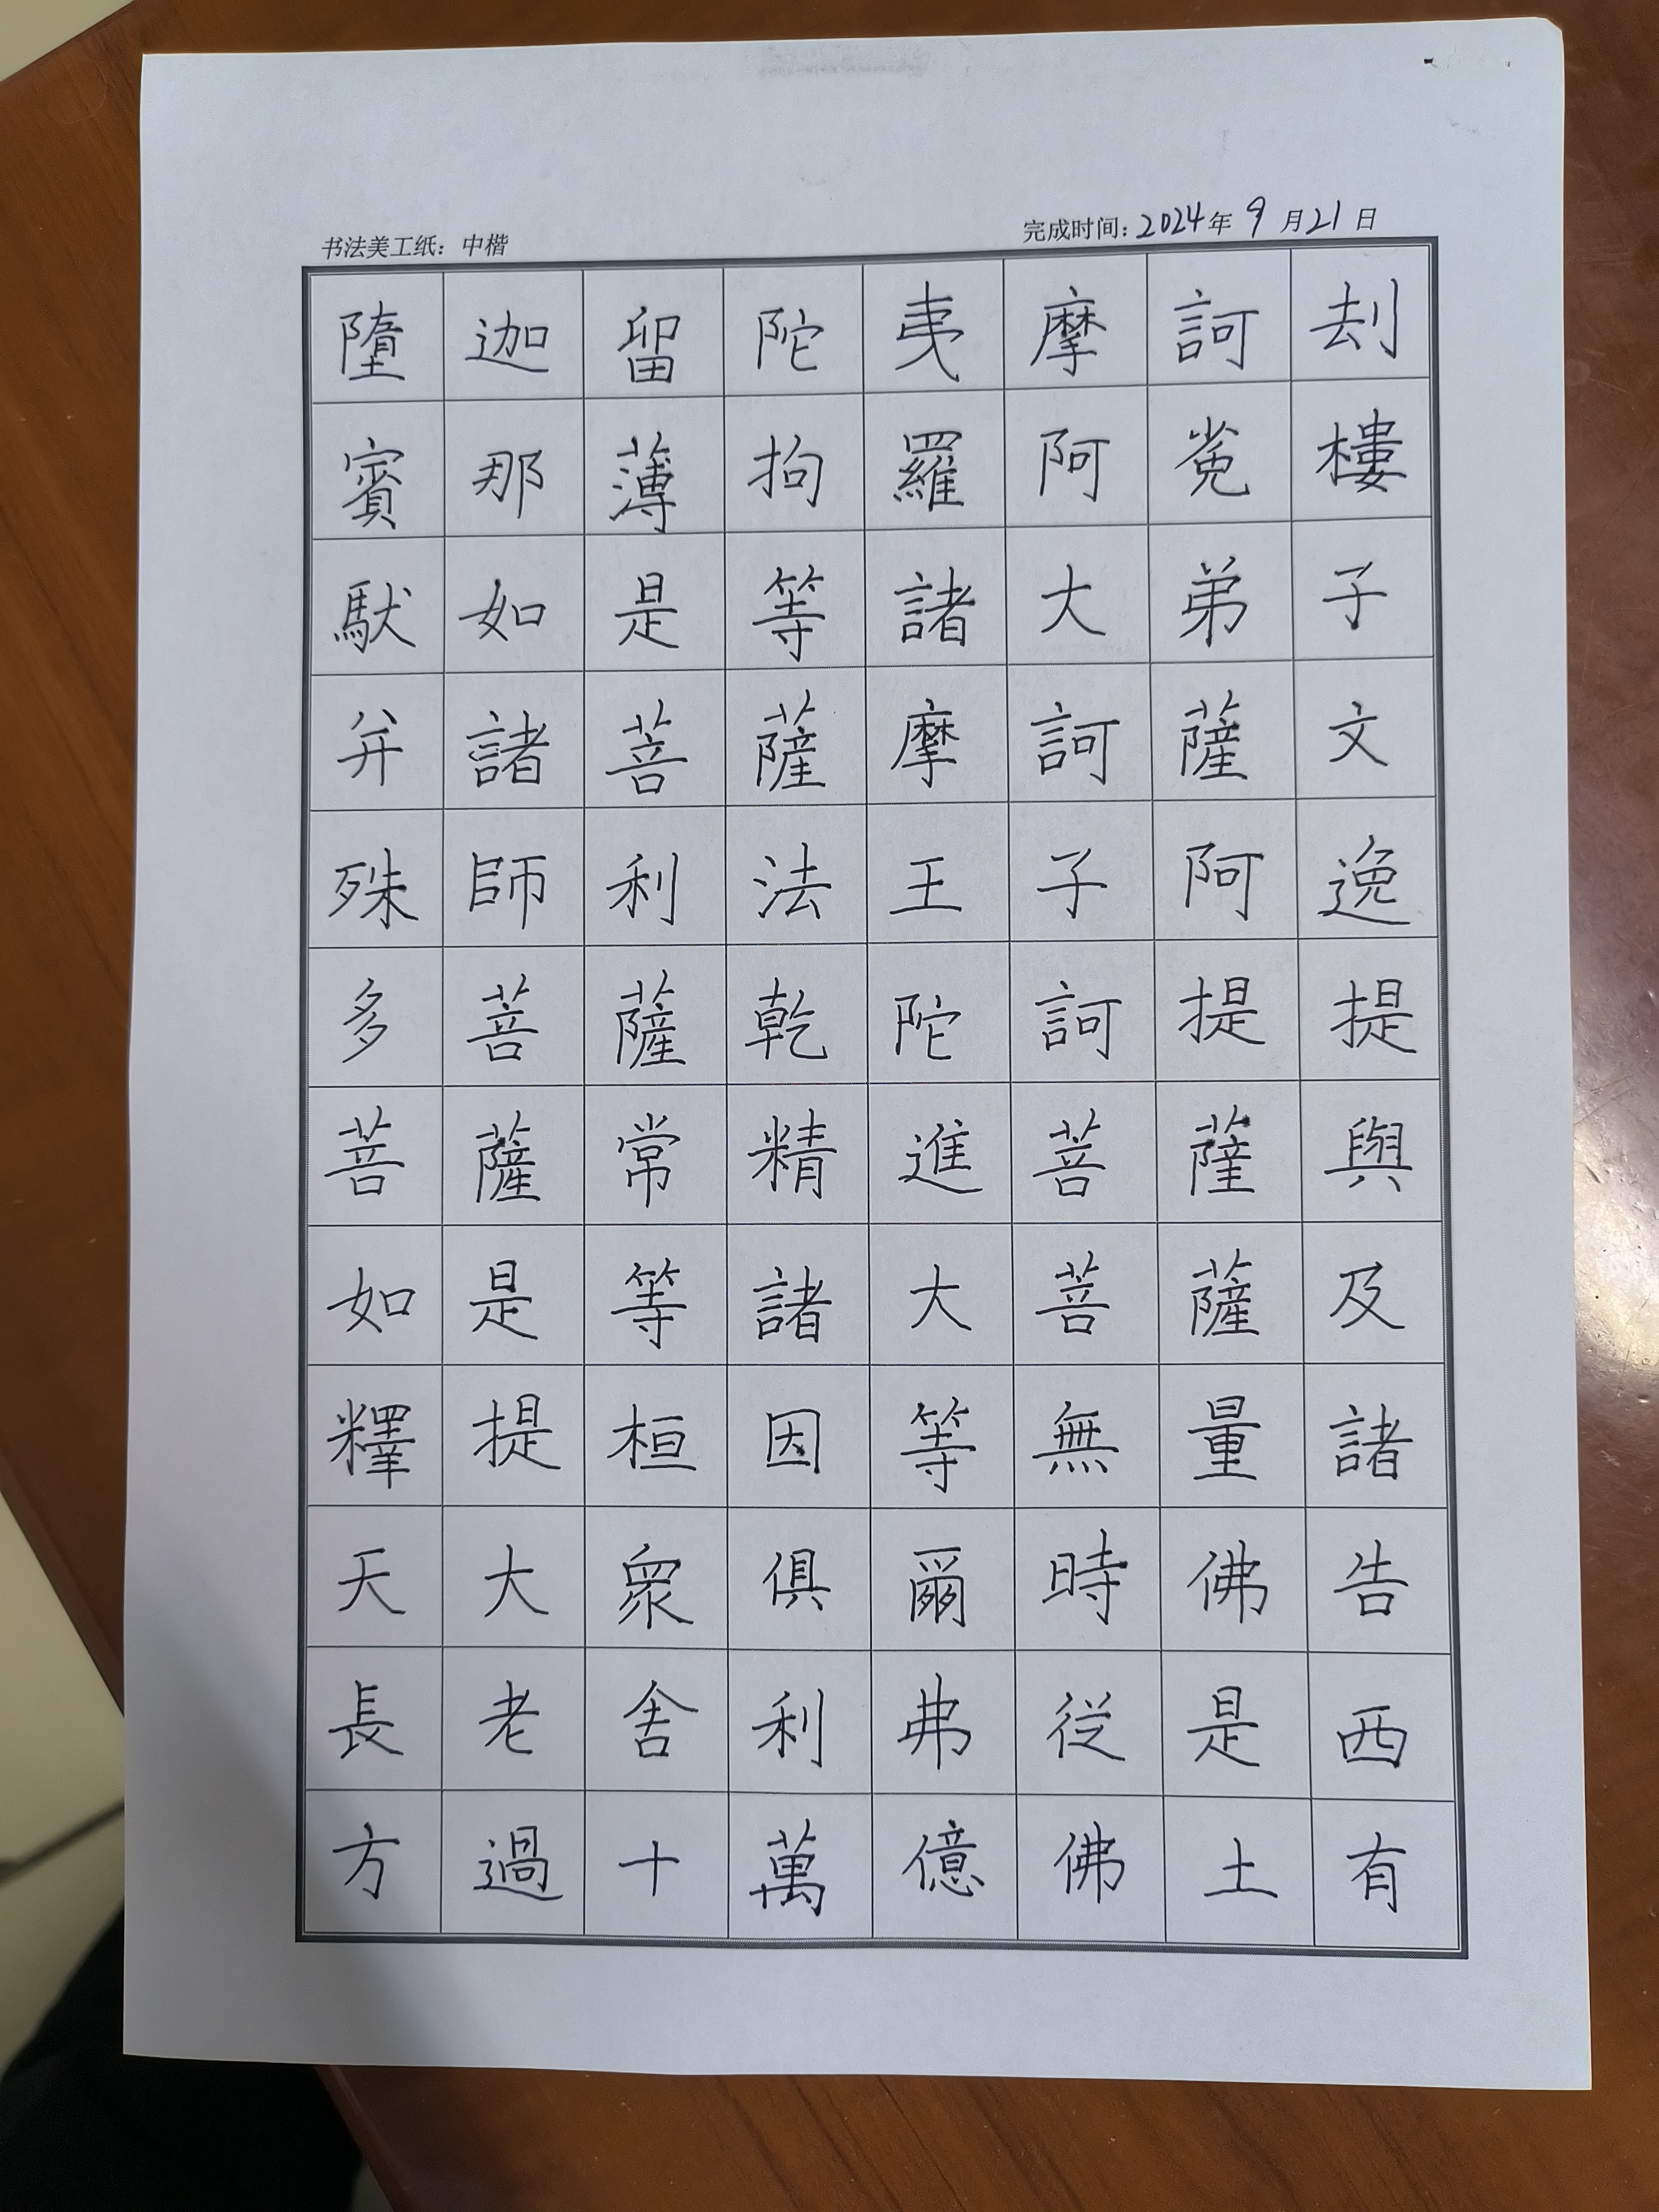 书法美工纸：中楷
完成时间：2024年9月21日
墮迦留陀夷摩訶劫
賓那薄拘羅阿㝹樓
馱如是等諸大弟子
并諸菩薩摩訶薩文
殊師利法王子阿逸
多菩薩乾陀訶提提
菩薩常精進菩薩與
如是等諸大菩薩及
釋提桓因等無量諸
天大衆俱爾時佛告
長老舍利弗從是西
方過十萬億佛土有